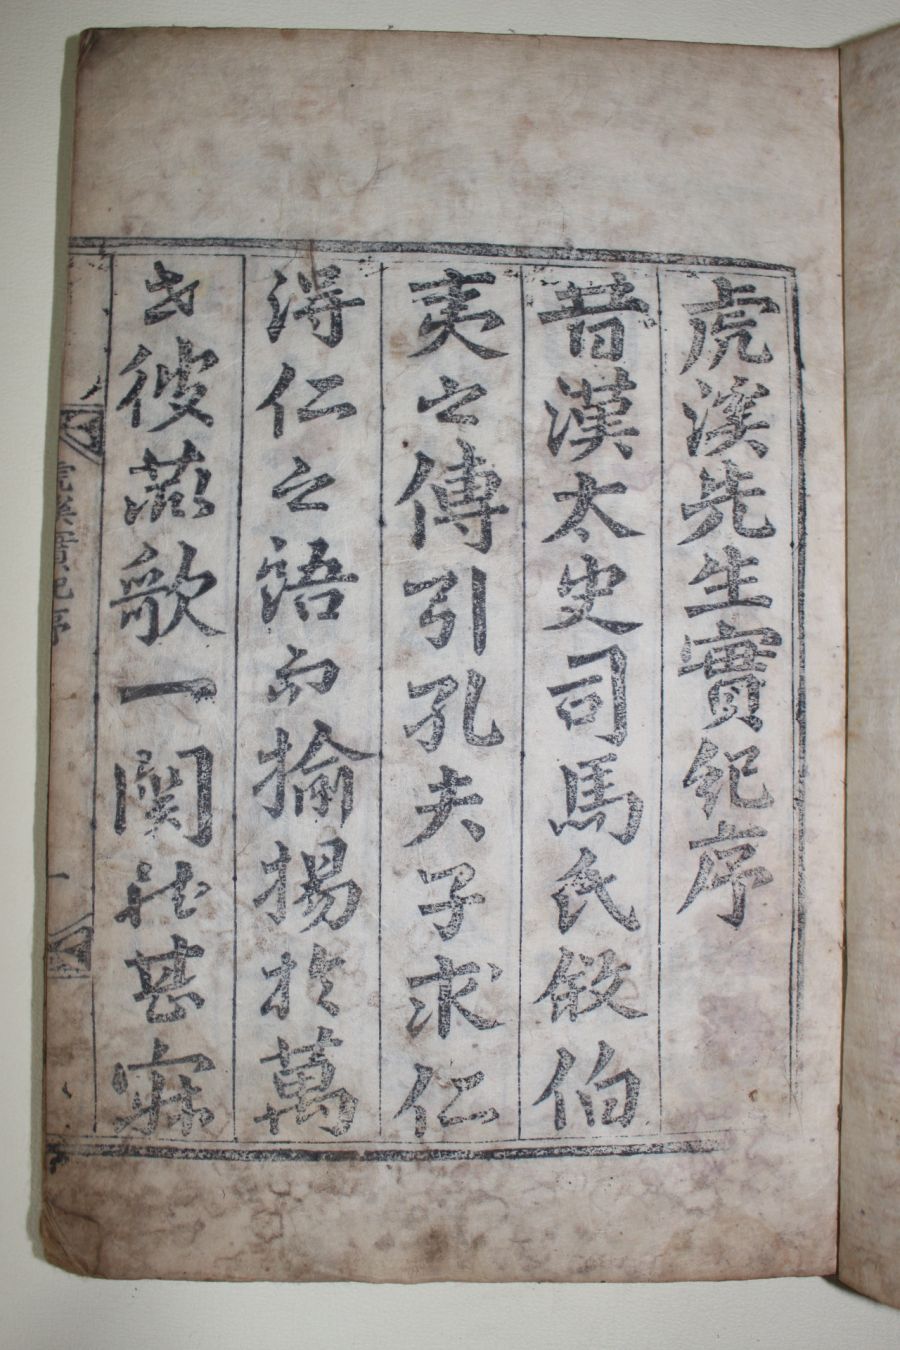 虎溪先生實紀序
昔漢太史司馬氏敍伯
夷之傳引孔夫子求仁
得仁之語而揄揚於萬
世彼燕歌一闋詞甚寂
虎溪實紀序
一